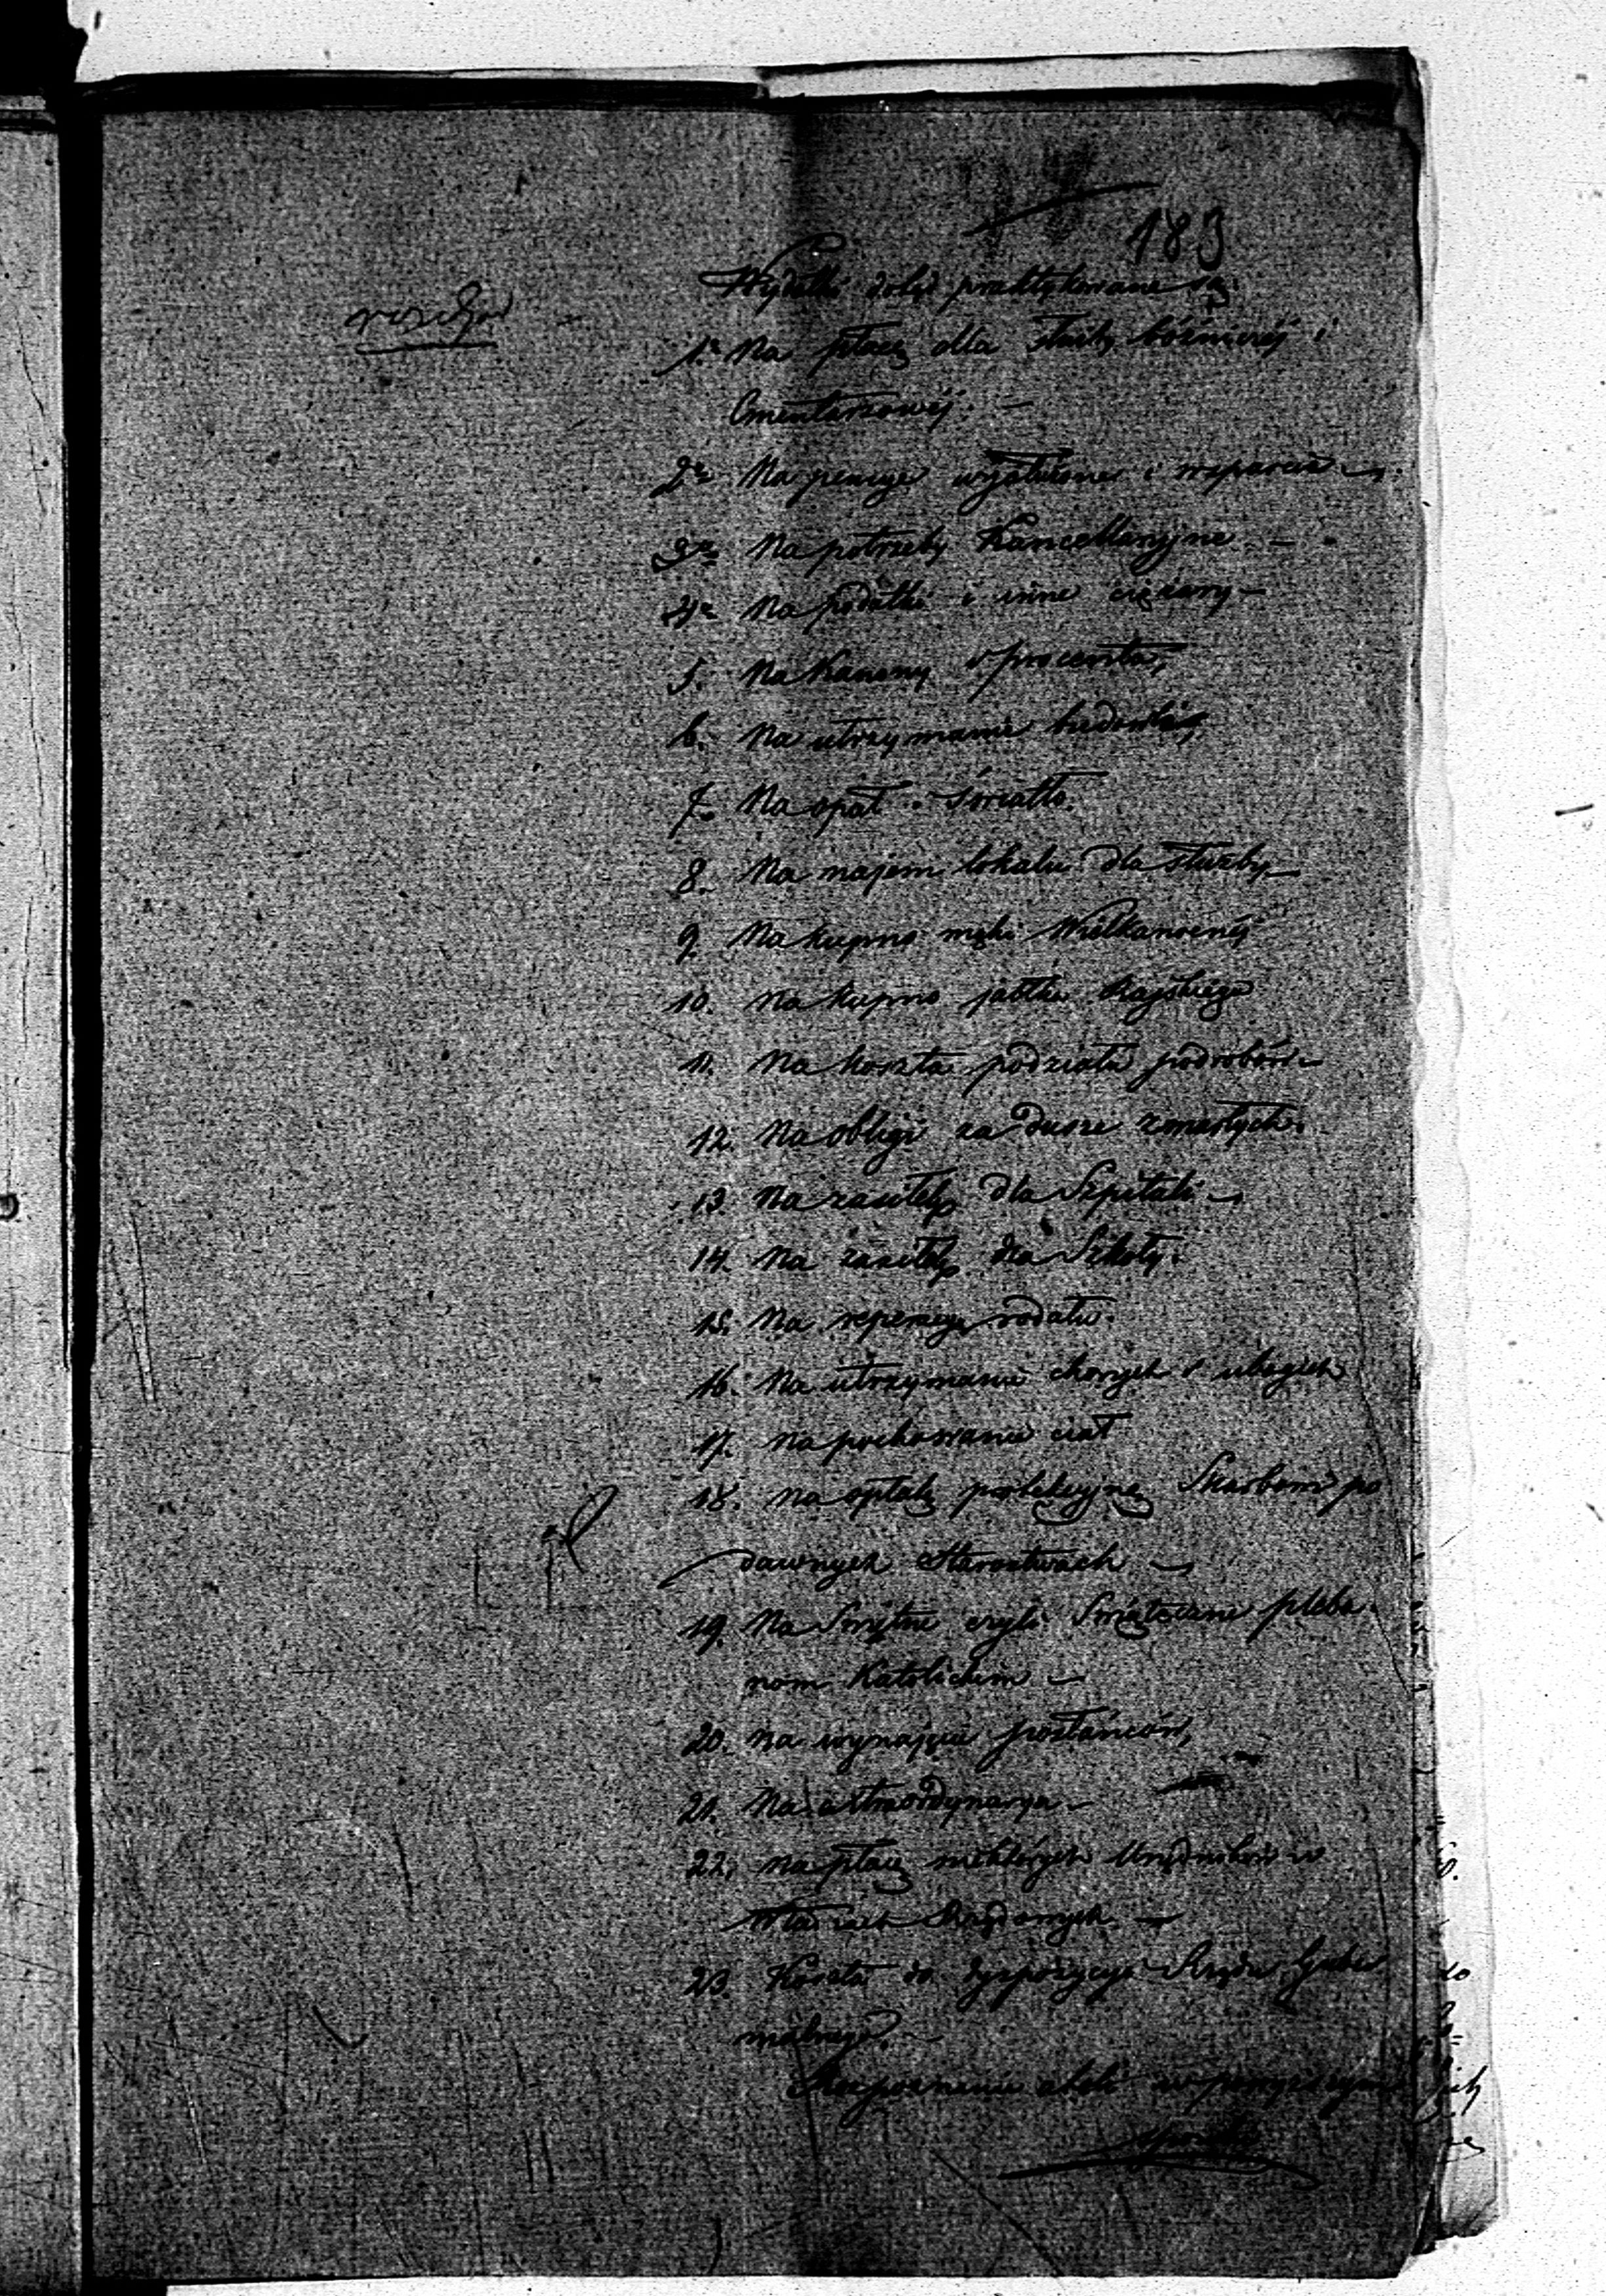 183
Wydatki dotąd praktykowane są:
rozchód
1º Na płacę dla służby bóżniczéj i
Cmentarzowéj. —
2º Na pensye wysłużone i wsparcia —
3º Na potrzeby Kancellaryjne. —
4º Na podatki i inne ciężary —
5. Na Kanony i procenta,
6. Na utrzymanie budowli
7. Na opał i światło.
8. Na najem lokalu dla służby —
9. Na kupno mąki Wielkanocnéj
10. Na kupno jabłka Rajskiego
11. Na koszta podziału podrobów —
12. Na obligi za dusze zmarłych.
13. Na zasiłek dla Szpitali —
14. Na zasiłek dla Szkoły.
15. Na reperacyę rodału.
16. Na utrzymanie chorych i ubogich
17. Na pochowanie ciał
18. Na opłatę protekcyjną Skarbowi po
dawnych Starostwach —
19. Na czyli pleba-
nom Katolickim —
20. Na wynajęcie posłańców,
21. Na extraordynarya —
22. Na płacę niektórych Urzędników w
Władzach Rządowych. —
23. Koszta do dyspozycyi Rządu Guber
nialnego. —